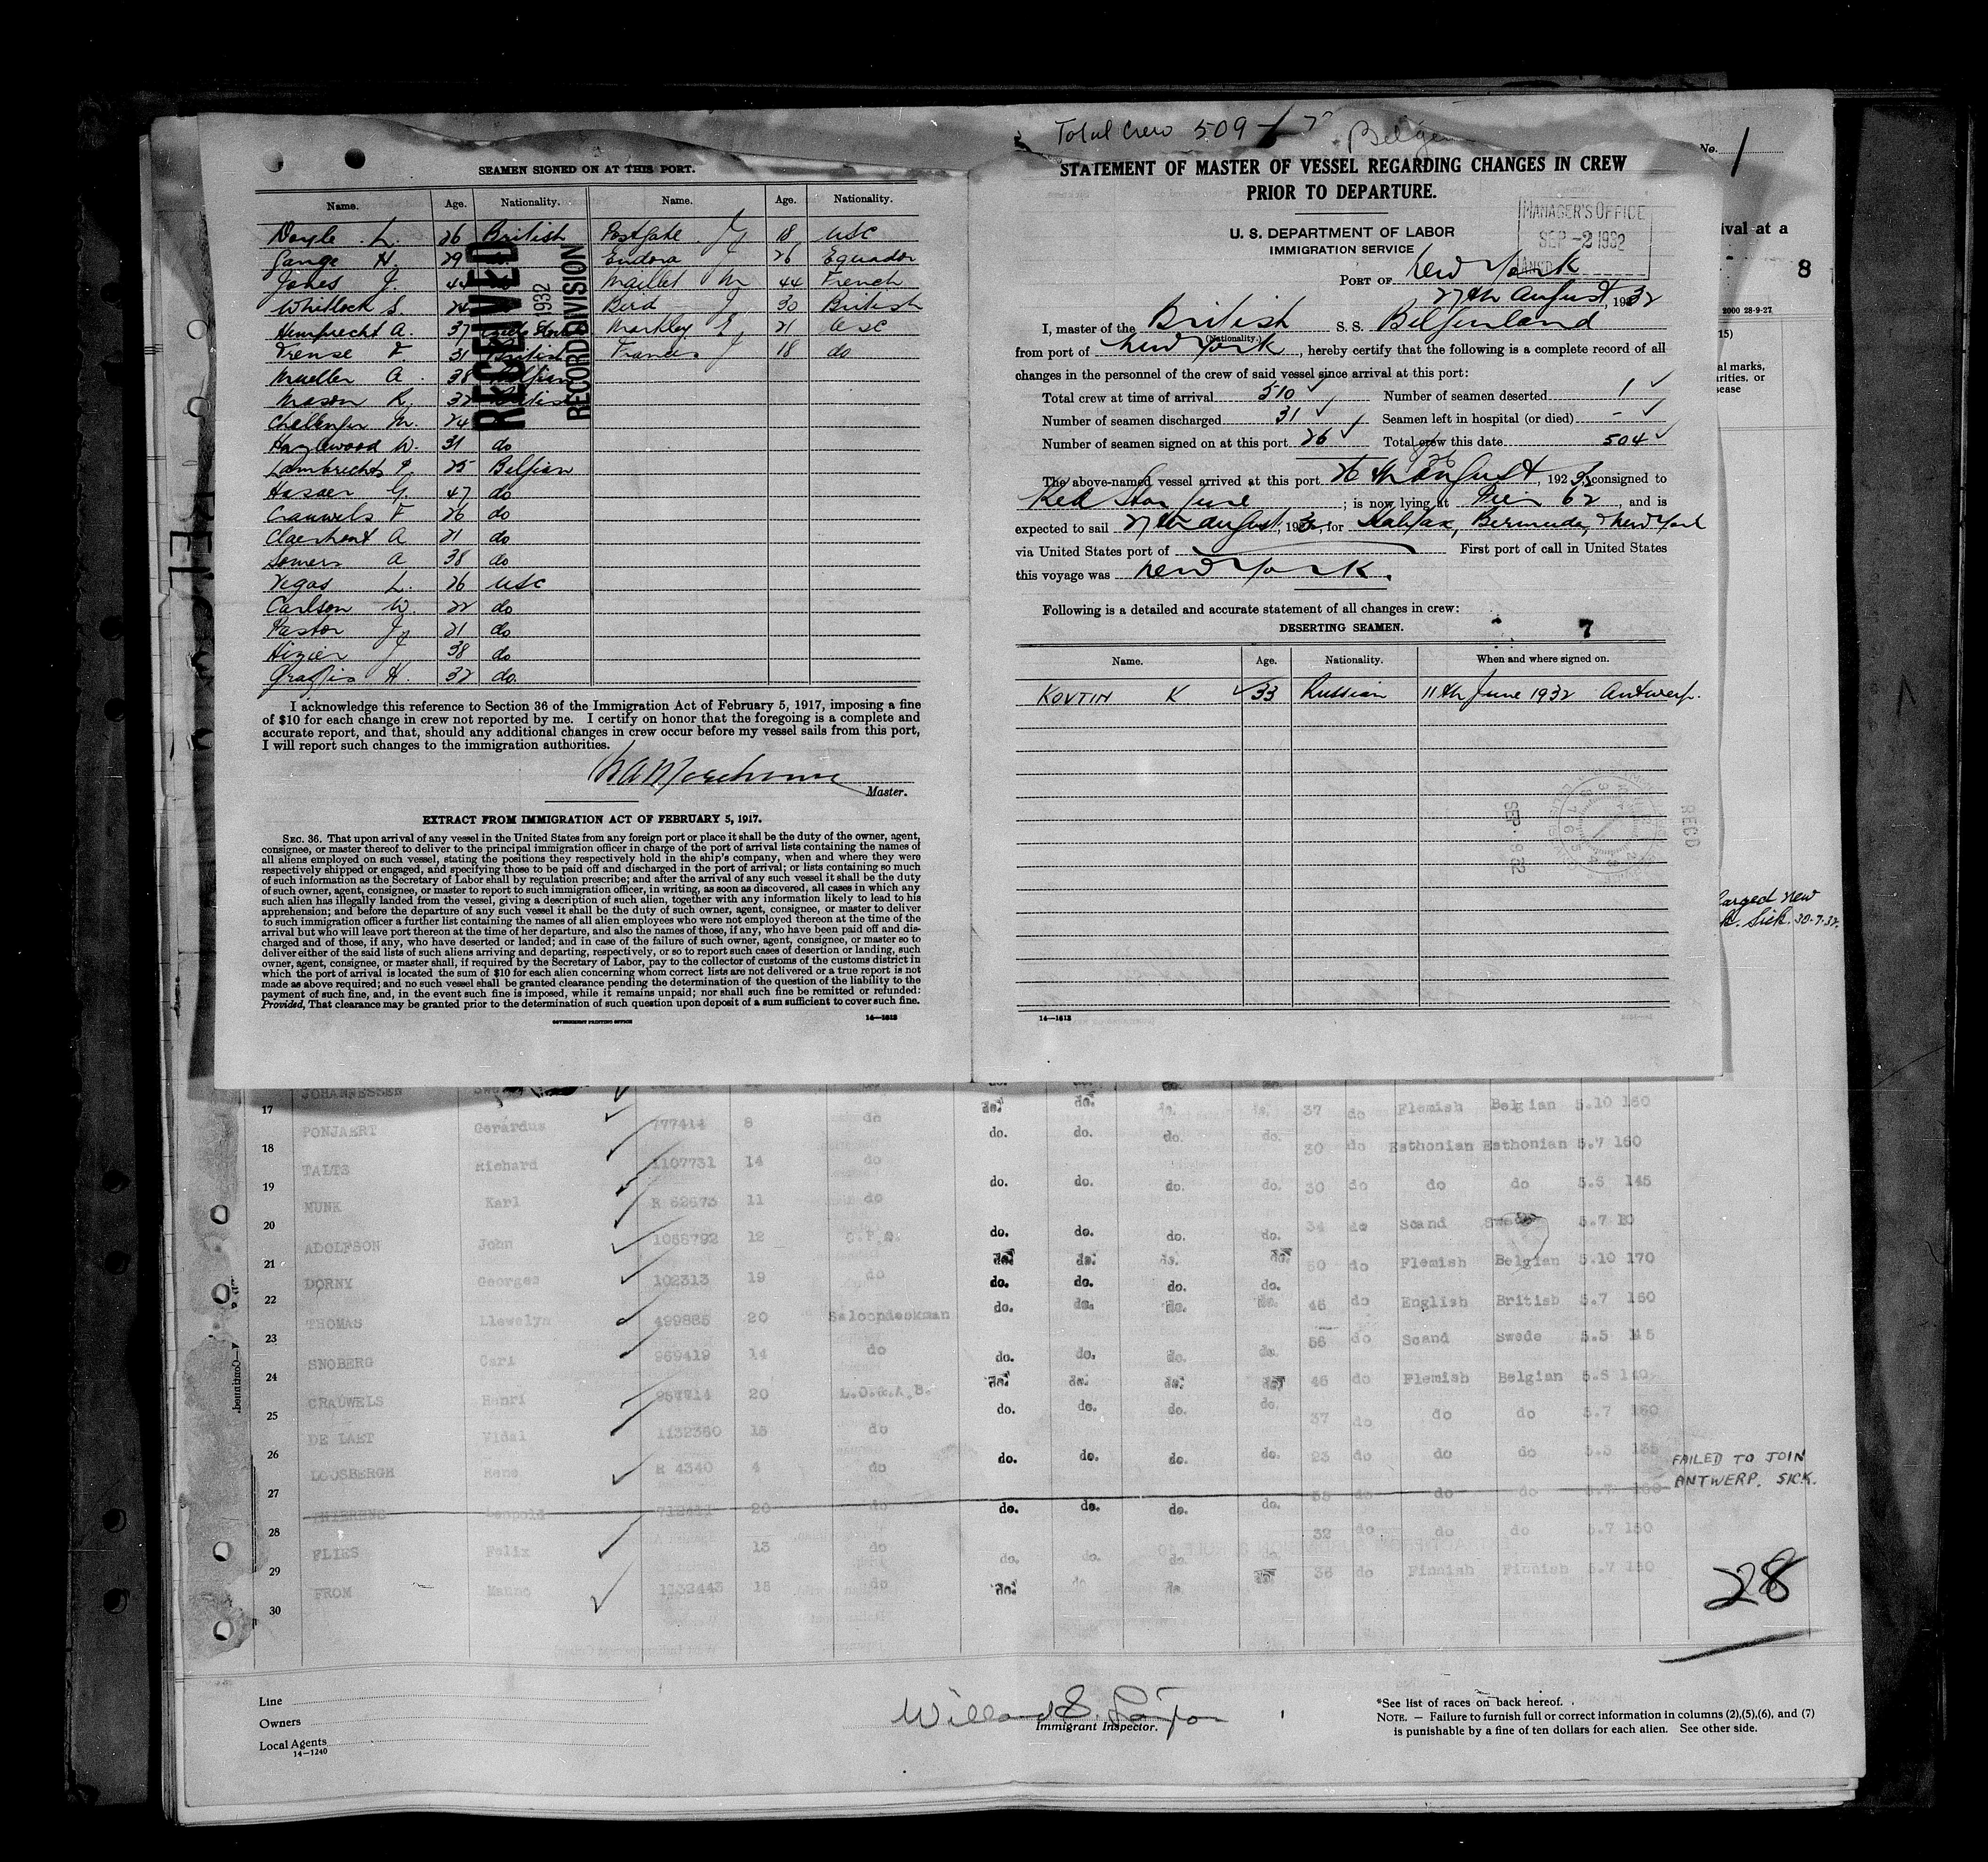 Total Crew 509
SEAMEN SIGNED ON AT THIS PORT.
Name. Age. Nationality. Name. Age. Nationality.
Doyle L. 26 British Postgate J 18 USC
Gange H. 29 Endora J 26 Equador
Jones J. 44 Maillet M 44 French
Whitlock S. 24 Bird J 30 British
Humprecht A. 37 Markley E. 21 USC
Trense F. 31 British Francis J 18 do
Mueller A. 38 Belgian
Mason R. 32 British
Challenger M. 24
Hazlewood W. 31 do
Lambrechts 25 Belgian
Hasaer G. 47 do
Crauwels F 26 do
Claerhout A 21 do
Somers A 38 do
Vegas L. 26 USC
Carlson W. 22 do
Pastor J 21 do
Hizier J 38 do
H. 32 do.
RECEIVED
1932
RECORD DIVISION
I acknowledge this reference to Section 36 of the Immigration Act of February 5, 1917, imposing a fine
of $10 for each change in crew not reported by me. I certify on honor that the foregoing is a complete and
accurate report, and that, should any additional changes in crew occur before my vessel sails from this port,
I will report such changes to the immigration authorities.
Master.
EXTRACT FROM IMMIGRATION ACT OF FEBRUARY 5, 1917.
SEC. 36. That upon arrival of any vessel in the United States from any foreign port or place it shall be the duty of the owner, agent,
consignee, or master thereof to deliver to the principal immigration officer in charge of the port of arrival lists containing the names of
all aliens employed on such vessel, stating the positions they respectively hold in the ship's company, when and where they were
respectively shipped or engaged, and specifying those to be paid off and discharged in the port of arrival; or lists containing so much
of such information as the Secretary of Labor shall by regulation prescribe; and after the arrival of any such vessel it shall be the duty
of such owner, agent, consignee, or master to report to such immigration officer, in writing, as soon as discovered, all cases in which any
such alien has illegally landed from the vessel, giving a description of such alien, together with any information likely to lead to his
apprehension; and before the departure of any such vessel it shall be the duty of such owner, agent, consignee, or master to deliver
to such immigration officer a further list containing the names of all alien employees who were not employed thereon at the time of the
arrival but who will leave port thereon at the time of her departure, and also the names of those, if any, who have been paid off and dis-
charged and of those, if any, who have deserted or landed; and in case of the failure of such owner, agent, consignee, or master so to
deliver either of the said lists of such aliens arriving and departing, respectively, or so to report such cases of desertion or landing, such
owner, agent, consignee, or master shall, if required by the Secretary of Labor, pay to the collector of customs of the customs district in
which the port of arrival is located the sum of $10 for each alien concerning whom correct lists are not delivered or a true report is not
made as above required; and no such vessel shall be granted clearance pending the determination of the question of the liability to the
payment of such fine, and, in the event such fine is imposed, while it remains unpaid; nor shall such fine be remitted or refunded:
Provided, That clearance may be granted prior to the determination of such question upon deposit of a sum sufficient to cover such fine.
GOVERNMENT PRINTING OFFICE 14—1613
STATEMENT OF MASTER OF VESSEL REGARDING CHANGES IN CREW
PRIOR TO DEPARTURE.
U. S. DEPARTMENT OF LABOR
IMMIGRATION SERVICE
MANAGER'S OFFICE
SEP -2 1932
ANS'D
PORT OF New York
27th August, 1932
I, master of the British S. S. Belgenland
(Nationality.)
from port of New York, hereby certify that the following is a complete record of all
changes in the personnel of the crew of said vessel since arrival at this port:
Total crew at time of arrival 510 Number of seamen deserted 1
Number of seamen discharged 31 Seamen left in hospital (or died) -
Number of seamen signed on at this port 26 Total crew this date 504
The above-named vessel arrived at this port 26th August, 1932, consigned to
Red Star Line; is now lying at Pier 62, and is
expected to sail 27th August, 1932, for Halifax, Bermuda, & New York
via United States port of First port of call in United States
this voyage was New York.
Following is a detailed and accurate statement of all changes in crew:
DESERTING SEAMEN. 7
Name. Age. Nationality. When and where signed on.
KOVTIN K 33 Russian 11th June 1932 Antwerp.
REC'D
SEP. 9 32
14—1613
No. 1
ival at a
8
2000 28-9-27
15)
al marks,
rities, or
sease
arged New
Sick. 30-7-32.
JOHANNESSEN
17 PONJAERT Gerardus 777414 8 do do. do. do. do. 37 do Flemish Belgian 5.10 160
18 TALTS Richard 1107731 14 do do. do. do. do. 30 do Esthonian Esthonian 5.7 160
19 MUNK Karl R 62673 11 do do. do. do. do. 30 do do do 5.6 145
20 ADOLFSON John 1058792 12 do. do. do. do. 34 do Scand Swede 5.7
21 DORNY Georges 102313 19 do do. do. do. do. 50 do Flemish Belgian 5.10 170
22 THOMAS Llewelyn 499885 20 Saloondeckman do. do. do. do. 46 do English British 5.7 150
23 SNOBERG Carl 969419 14 do do. do. do. do. 56 do Scand Swede 5.5
24 CRAUWELS Henri 957714 20 do. do. do. do. 46 do Flemish Belgian 5.6 140
25 DE LAET Vidal 1132360 15 do do. do. do. do. 37 do do do 5.7 160
26 LOUSBERGH Rene R 4340 4 do do. do. do. do. 23 do do do 5.5 135
27 THIERENS Leopold 712441 20 do do. do. do. do. do do do 5.7
FAILED TO JOIN
ANTWERP. SICK.
28 FLIES Felix 13 do do. do. do. do. 32 do do do 5.7 150
29 FROM Mauno 1132443 15 do do. do. do. 36 do Finnish Finnish 5.7 150
30
28
Continued.
Line
Owners
Local Agents
14—1240
Immigrant Inspector.
*See list of races on back hereof.
NOTE. — Failure to furnish full or correct information in columns (2),(5),(6), and (7)
is punishable by a fine of ten dollars for each alien. See other side.